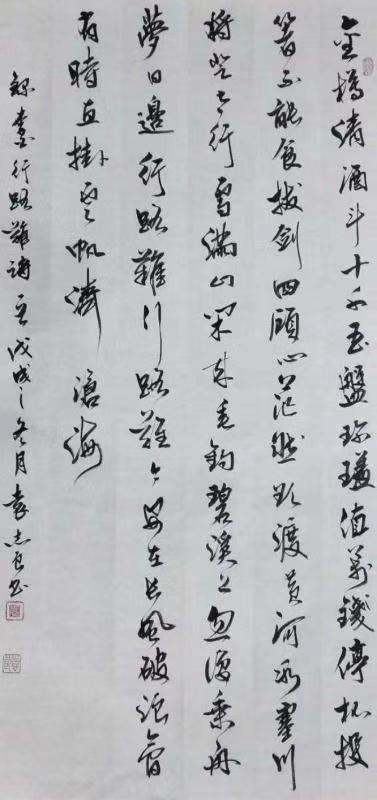 金樽清酒斗十千玉盤珍饈值萬錢停杯投
箸不能食拔劍四顧心茫然欲渡黃河冰塞川
將登太行雪滿山閑來垂釣碧溪上忽復乘舟
夢日邊行路難行路難今安在長風破浪會
有時直掛雲帆濟滄海
錄李白行路難詩戊戌之冬月袁志良書